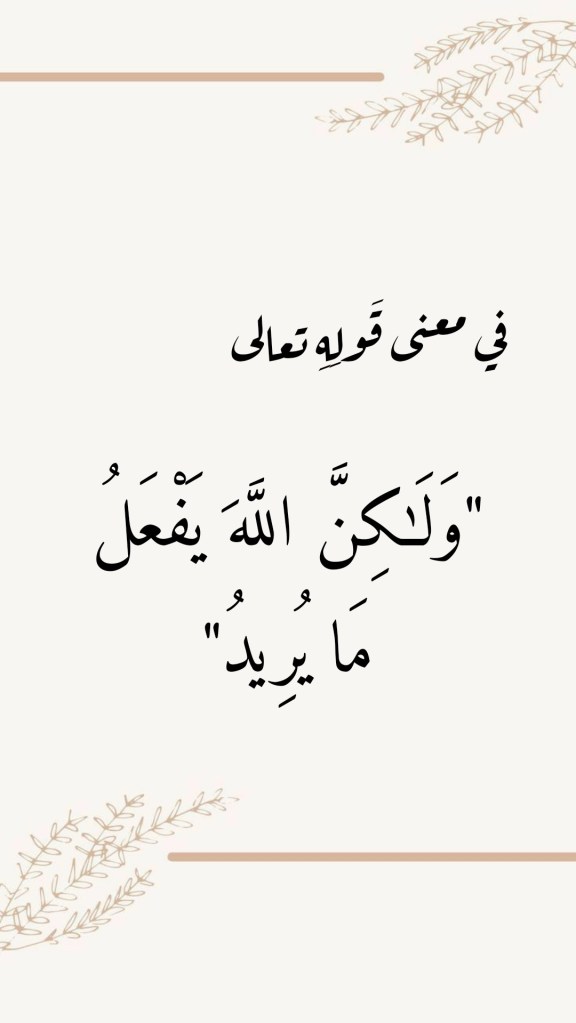 في معنى قَولِهِ تعالى
"وَلَـٰكِنَّ اللَّهَ يَفْعَلُ
مَا يُرِيدُ"